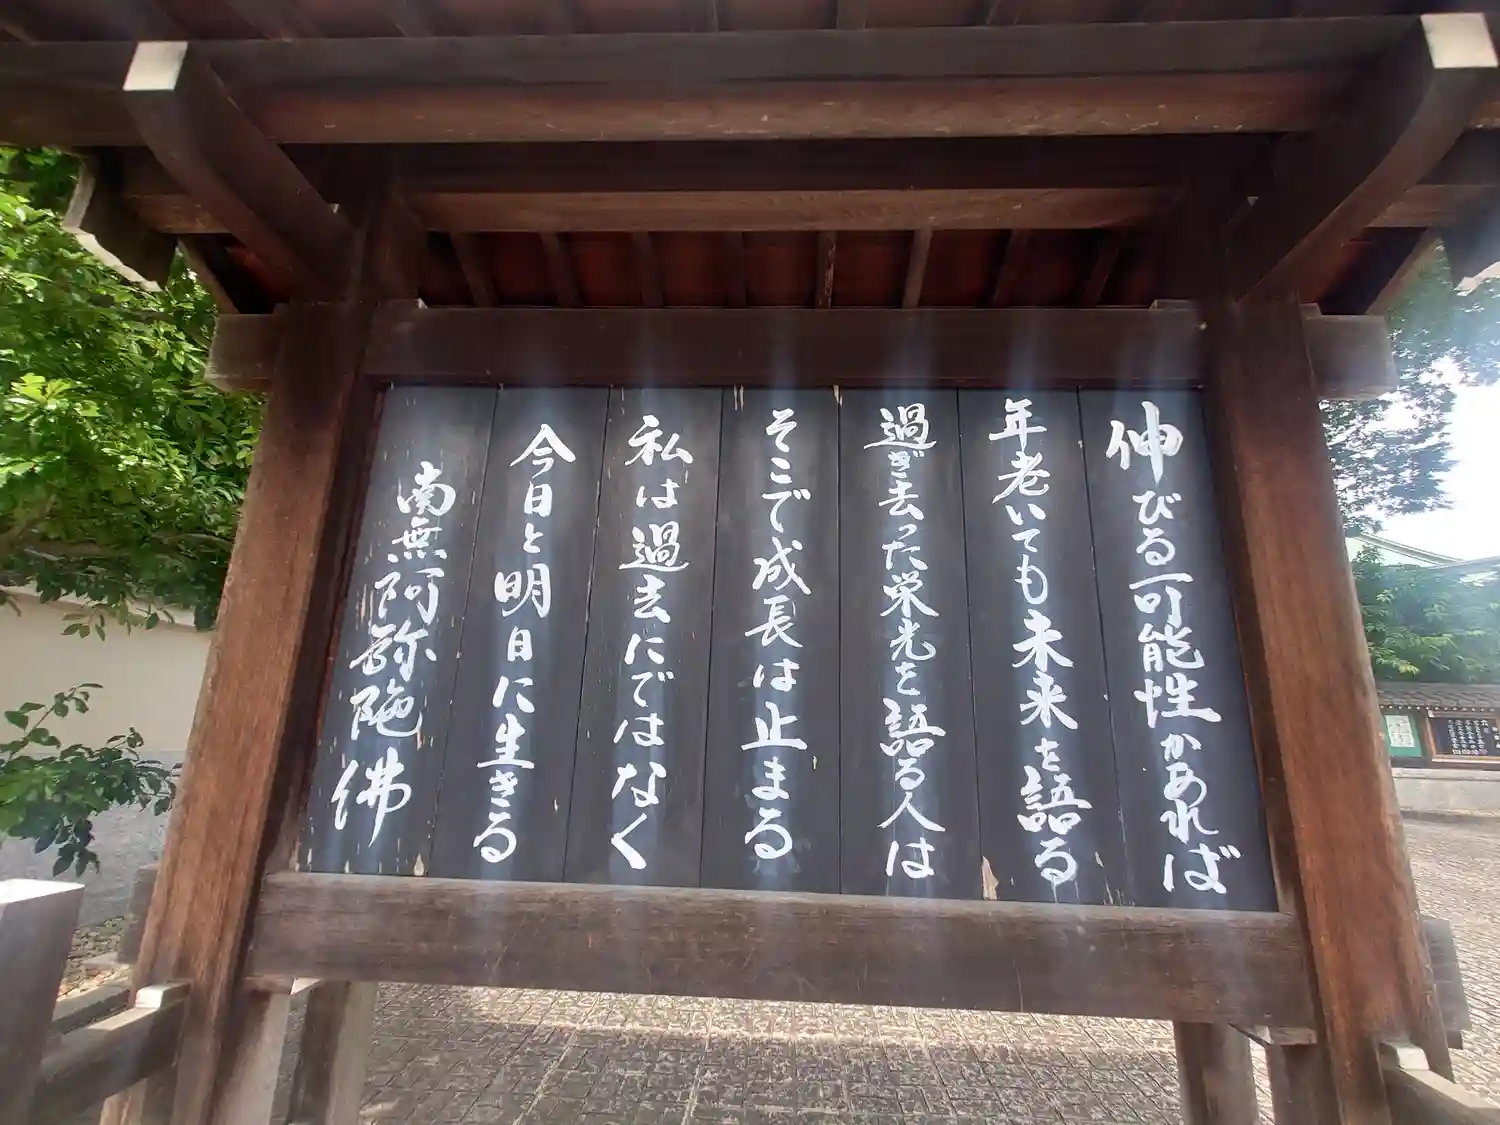 伸びる可能性があれば
年老いても未来を語る
過ぎ去った栄光を語る人は
そこで成長は止まる
私は過去にではなく
今日と明日に生きる
南無阿弥陀佛